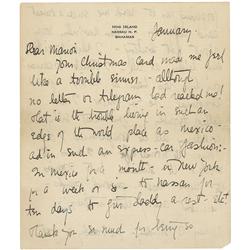 HOG ISLAND
NASSAU N. P.
BAHAMAS
January
Dear Marion
Your Christmas Card made me feel
like a terrible sinner - although
no letter or telegram had reached me!
that is the trouble living in such an
edge of the world place as Mexico
and in such an express-car fashion:-
in Mexico for a month - in New York
for a week or so - to Nassau for
ten days to give daddy a rest etc!
Thank you so much for being so